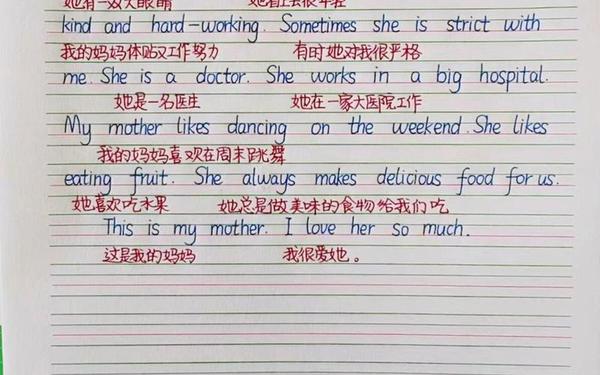 她有一双大眼睛
kind and hard-working. Sometimes she is strict with
我的妈妈体贴又工作努力 有时她对我很严格
me. She is a doctor. She works in a big hospital.
她是一名医生 她在一家大医院工作
My mother likes dancing on the weekend. She likes
我的妈妈喜欢在周末跳舞
eating fruit. She always makes delicious food for us.
她喜欢吃水果 她总是做美味的食物给我们吃
This is my mother. I love her so much.
这是我的妈妈 我很爱她。